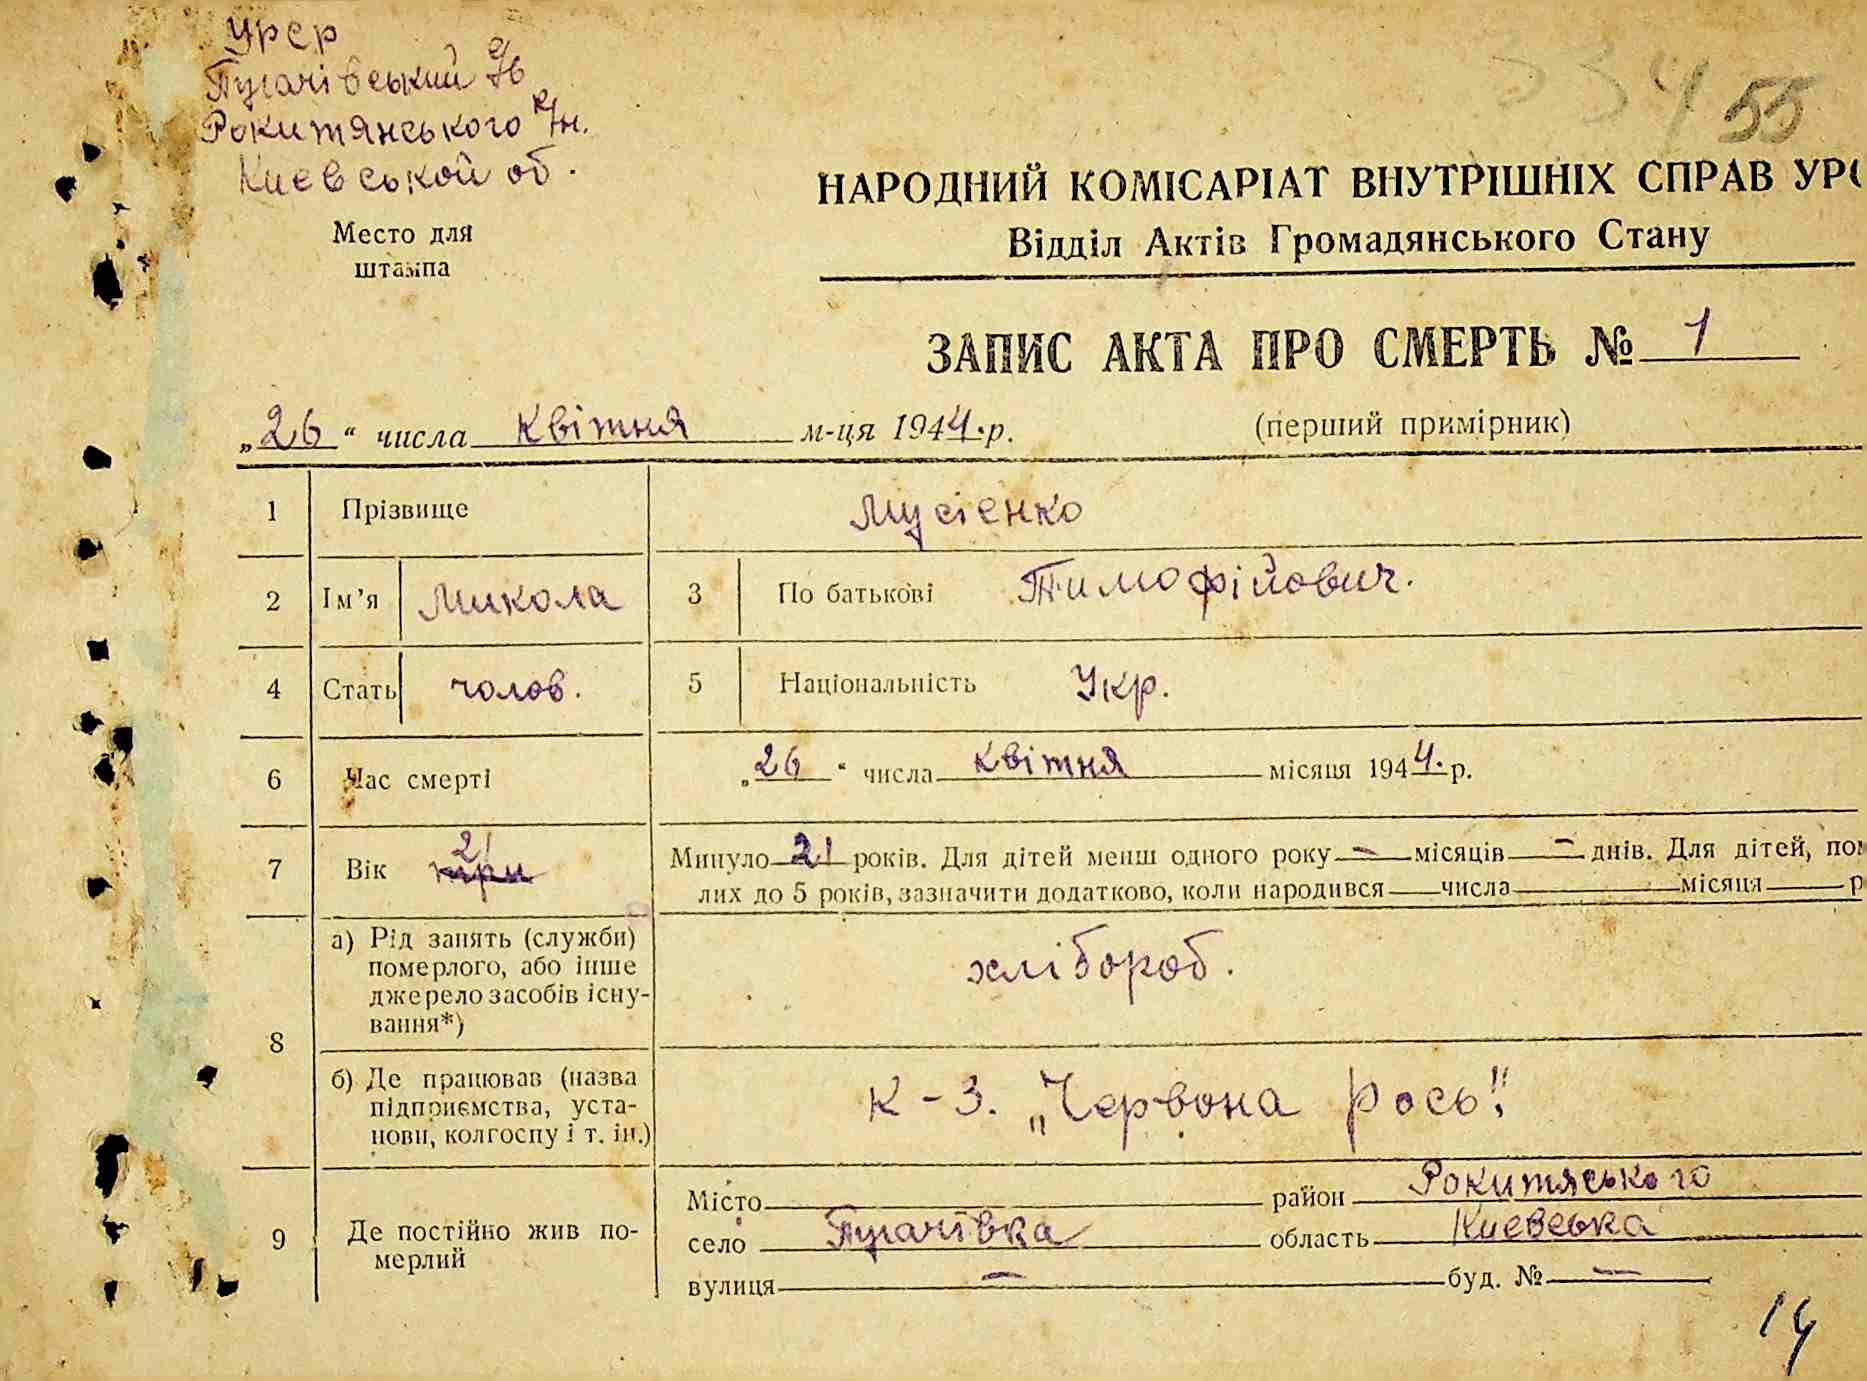 УРСР
Пугачівський с/в
Рокитянського р/н.
Києвськой об.
55
Место для
штампа
НАРОДНИЙ КОМІСАРІАТ ВНУТРІШНІХ СПРАВ УРС
Відділ Актів Громадянського Стану
ЗАПИС АКТА ПРО СМЕРТЬ № 1
„26“ числа квітня м-ця 1944.р. (перший примірник)
1 Прізвище Мусієнко
2 Ім’я Микола 3 По батькові Тимофійович.
4 Стать чолов. 5 Національність Укр.
6 Час смерті „26“ числа квітня місяця 1944.р.
7 Вік три 21 Минуло 21 років. Для дітей менш одного року – місяців – днів. Для дітей, пом
лих до 5 років, зазначити додатково, коли народився числа місяця р
8 а) Рід занять (служби)
померлого, або інше
джерело засобів існу-
вання*)
хлібороб.
б) Де працював (назва
підприємства, уста-
нови, колгоспу і т. ін.)
К-З. „Червона Рось“.
9 Де постійно жив по-
мерлий
Місто район Рокитяського
село Пугачівка область Києвська
вулиця – буд. № –
14